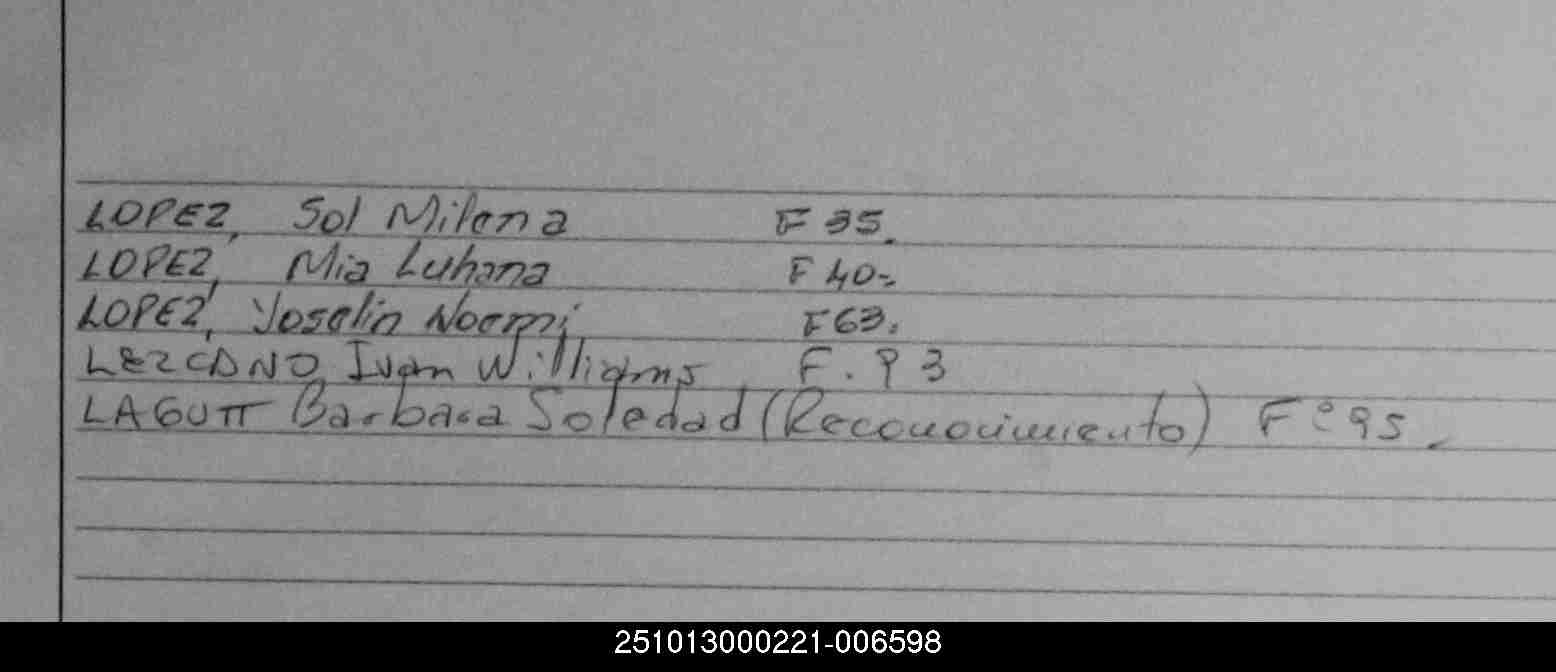 LOPEZ, Sol Milena F 35.
LOPEZ, Mia Luhana F 40-.
LOPEZ, Yoselin Noemi F 63.
LEZCANO, Ivan Williams F. 93
LAGUTT Barbara Soledad (Reconocimiento) Fº 95.
251013000221-006598